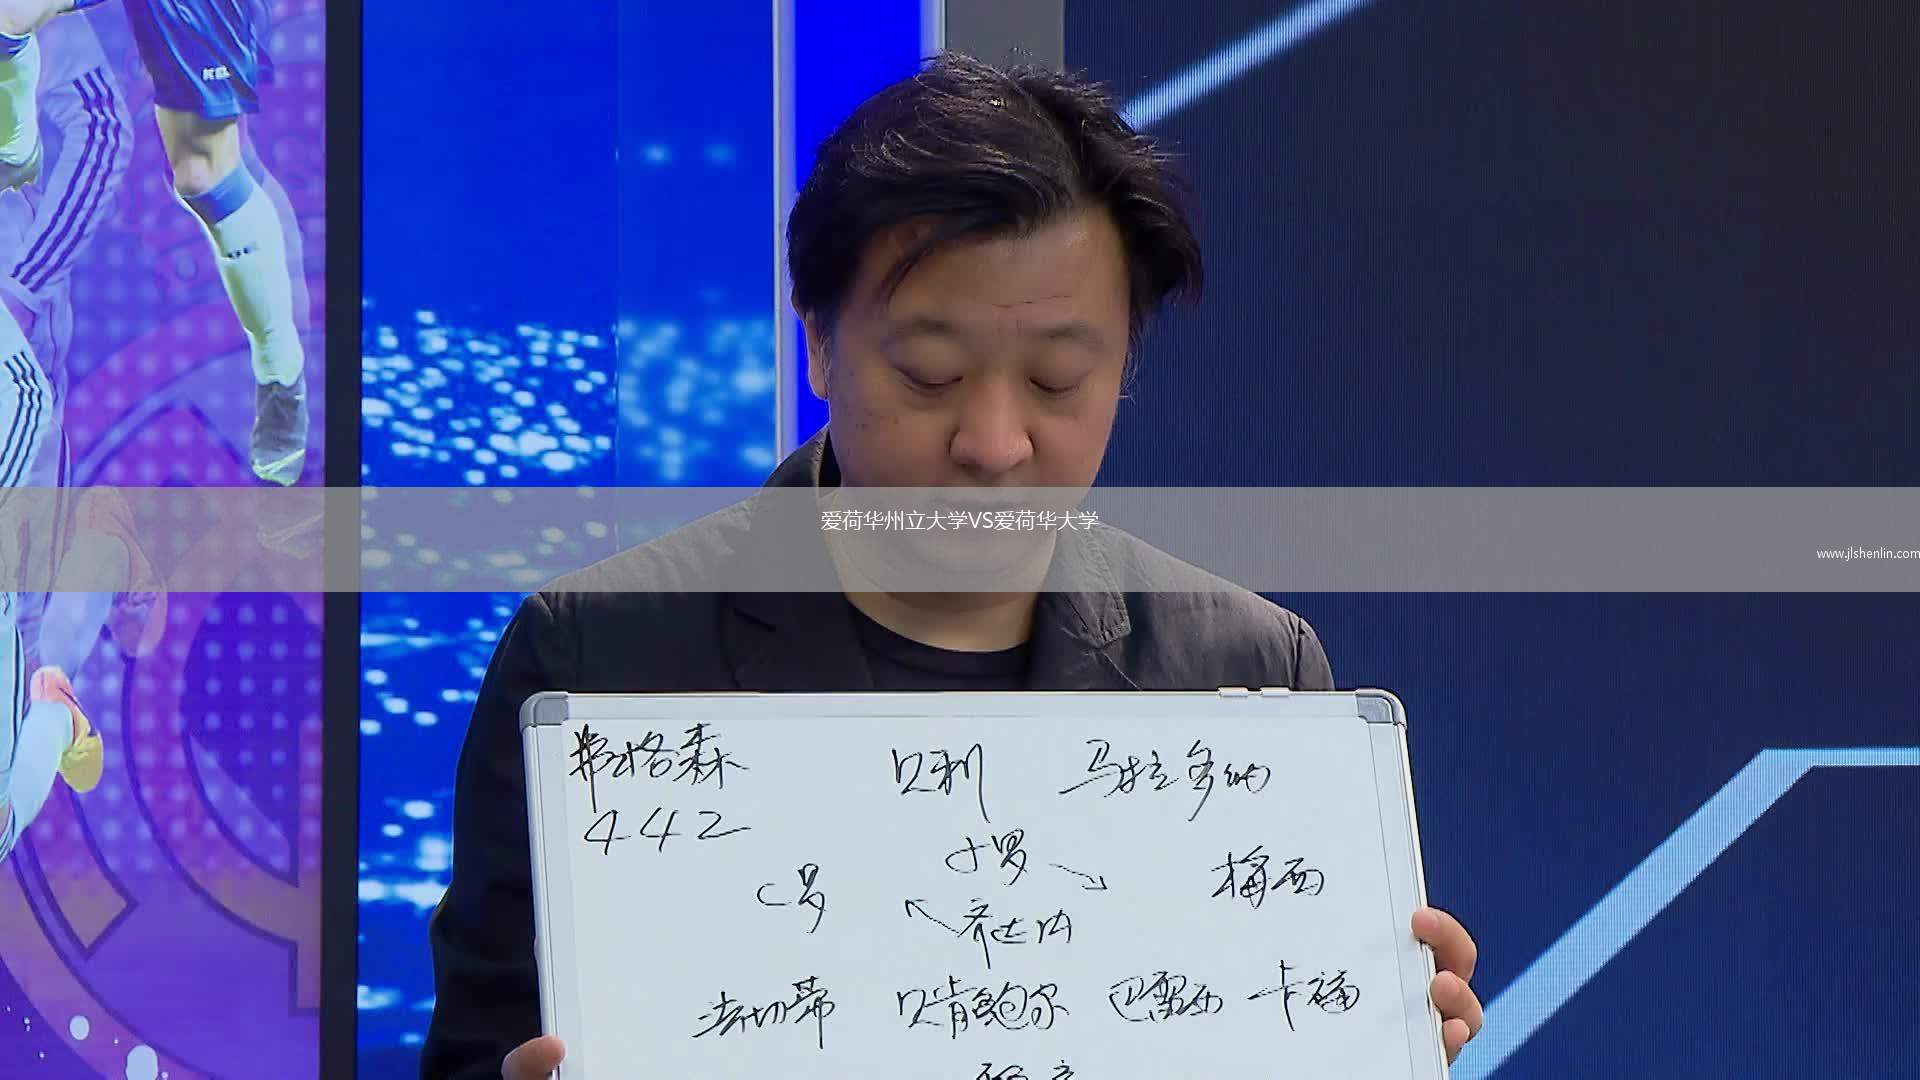 KEL
爱荷华州立大学VS爱荷华大学
www.jlshenlin.com
弗格森 贝利 马拉多纳
442
小罗
C罗 梅西
齐达内
法切蒂 贝肯鲍尔 巴雷西 卡福